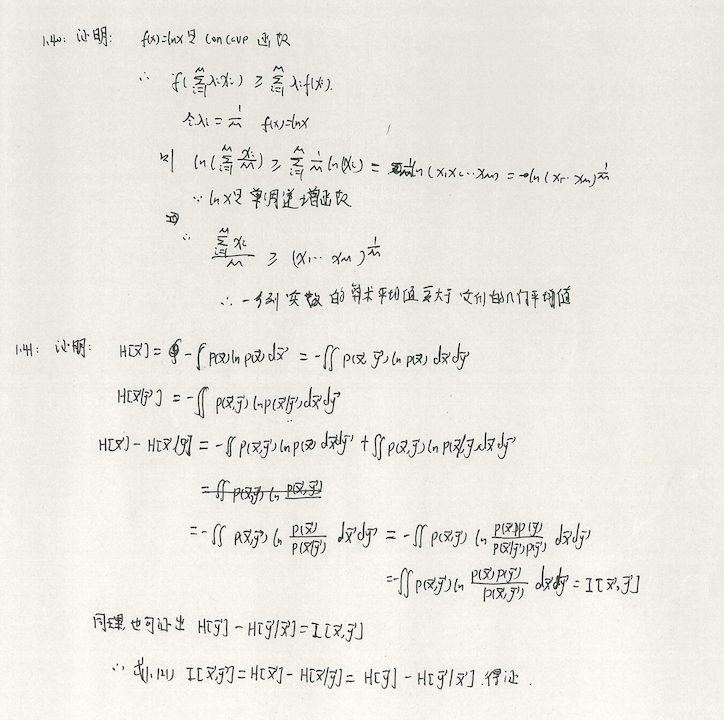 1.40: 证明: f(x)=lnx是 concave 函数
∴ f(∑_{i=1}^{M} λixi) ≥ ∑_{i=1}^{M} λif(xi).
令λi = 1/M f(x)=lnx
则 ln(∑_{i=1}^{M} xi/M) ≥ ∑_{i=1}^{M} 1/M ln(xi) = 1/M ln(x1x2...xM) = ln(x1...xM)^{1/M}
∵ lnx是单调递增函数
∴ ∑_{i=1}^{M} xi / M ≥ (x1...xM)^{1/M}
∴ 一系列实数的算术平均值 大于它们的几何平均值
1.41: 证明: H[x⃗] = -∫ p(x⃗) ln p(x⃗) dx⃗ = -∬ p(x⃗,y⃗) ln p(x⃗) dx⃗dy⃗
H[x⃗|y⃗] = -∬ p(x⃗,y⃗) ln p(x⃗|y⃗) dx⃗dy⃗
H[x⃗] - H[x⃗|y⃗] = -∬ p(x⃗,y⃗) ln p(x⃗) dx⃗dy⃗ + ∬ p(x⃗,y⃗) ln p(x⃗|y⃗) dx⃗dy⃗
= ∬ p(x⃗,y⃗) ln p(x⃗,y⃗)
= -∬ p(x⃗,y⃗) ln p(x⃗)/p(x⃗|y⃗) dx⃗dy⃗ = -∬ p(x⃗,y⃗) ln p(x⃗)p(y⃗)/p(x⃗|y⃗)p(y⃗) dx⃗dy⃗
= -∬ p(x⃗,y⃗) ln p(x⃗)p(y⃗)/p(x⃗,y⃗) dx⃗dy⃗ = I[x⃗,y⃗]
同理也可证出 H[y⃗] - H[y⃗|x⃗] = I[x⃗,y⃗]
∴ 式(1.121) I[x⃗,y⃗] = H[x⃗] - H[x⃗|y⃗] = H[y⃗] - H[y⃗|x⃗] 得证.